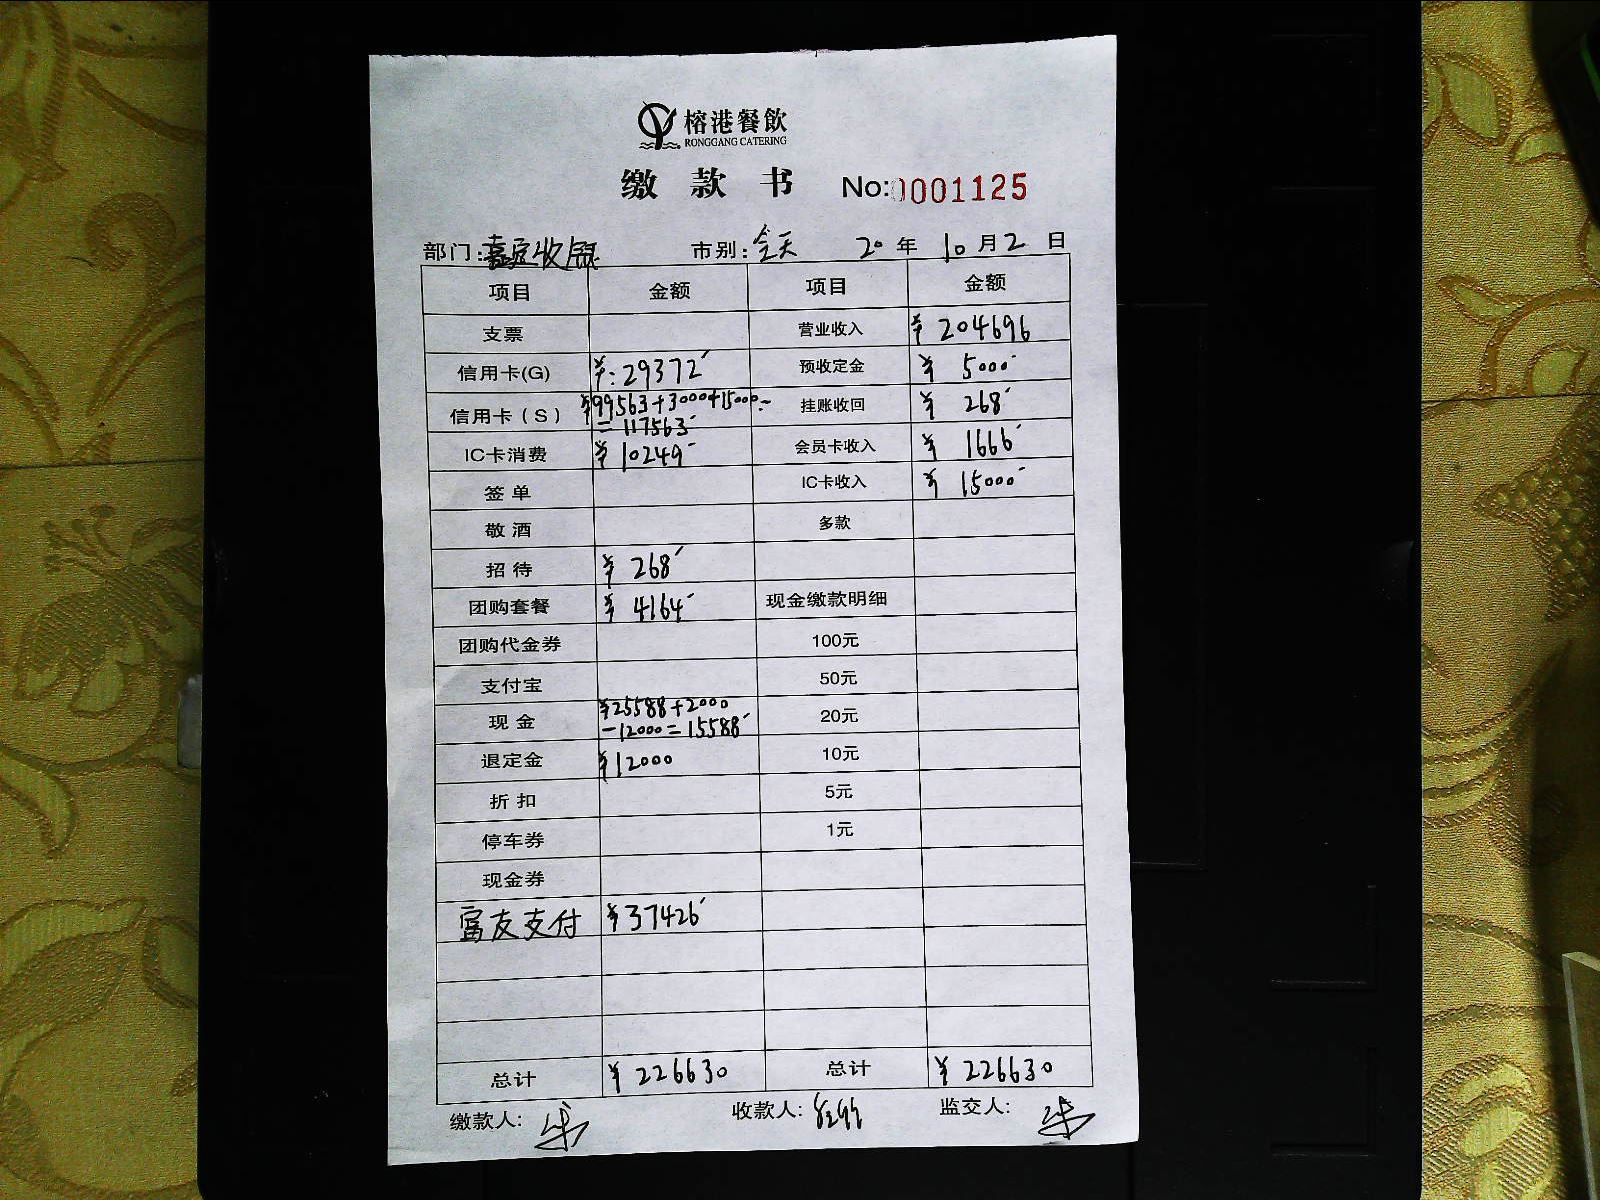 榕港餐飲
RONGGANG CATERING
缴款书 No:0001125
部门:嘉定收银 市别:全天 20年10月2日
项目 金额 项目 金额
支票 营业收入 ¥204696
信用卡(G) ¥:29372 预收定金 ¥5000
信用卡(S) ¥99563+3000+15000 挂账收回 ¥268
=117563
IC卡消费 ¥10249 会员卡收入 ¥1666
签单 IC卡收入 ¥15000
敬酒 多款
招待 ¥268
团购套餐 ¥4164 现金缴款明细
团购代金券 100元
支付宝 50元
现金 ¥25588+2000 20元
-12000=15588
退定金 ¥12000 10元
折扣 5元
停车券 1元
现金券
富友支付 ¥37426
总计 ¥226630 总计 ¥226630
缴款人: 收款人: 监交人: